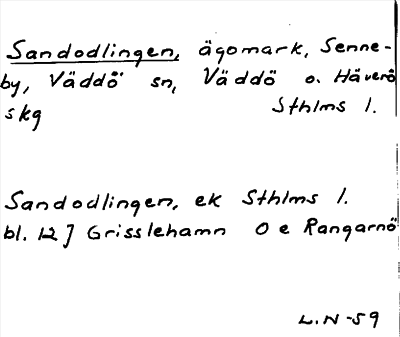 Sandodlingen, ägomark, Senne-
by, Väddö sn, Väddö o. Häverö
skg Sthlms l.
Sandodlingen, ek Sthlms l.
bl. 12 J Grisslehamn O e Rangarnö
L.N -59